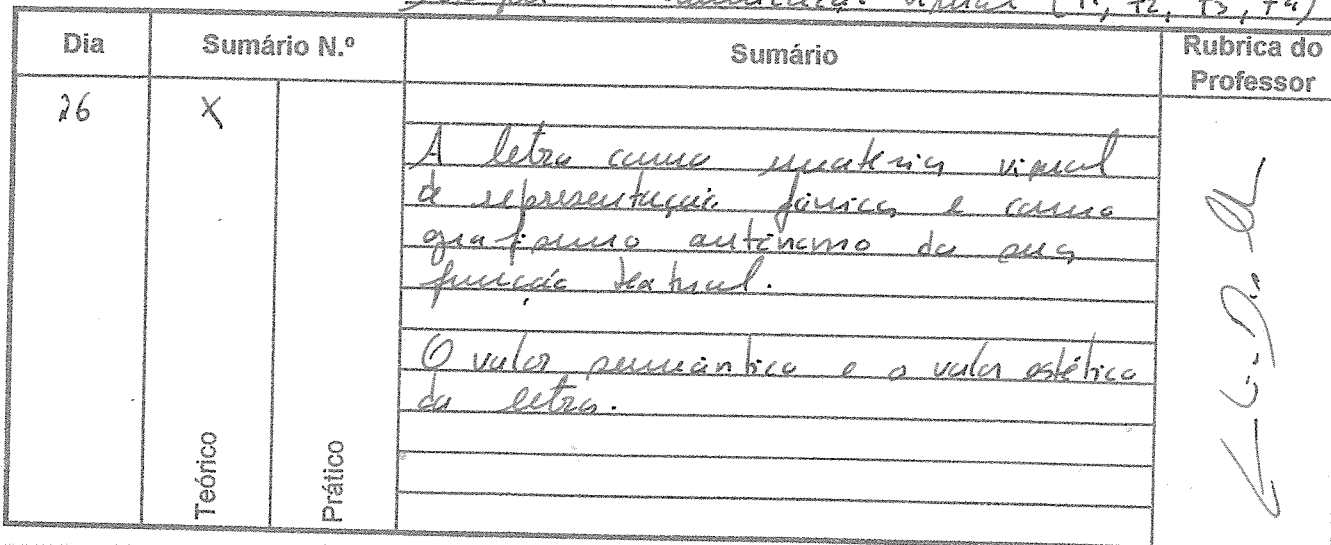 visual (T1, T2, T3, T4)
Dia
Sumário N.º
Sumário
Rubrica do
Professor
26
X
A letra como matéria visual
de representação fónica e como
grafismo autónomo da sua
função textual.
O valor semântico e o valor estético
da letra.
Teórico
Prático